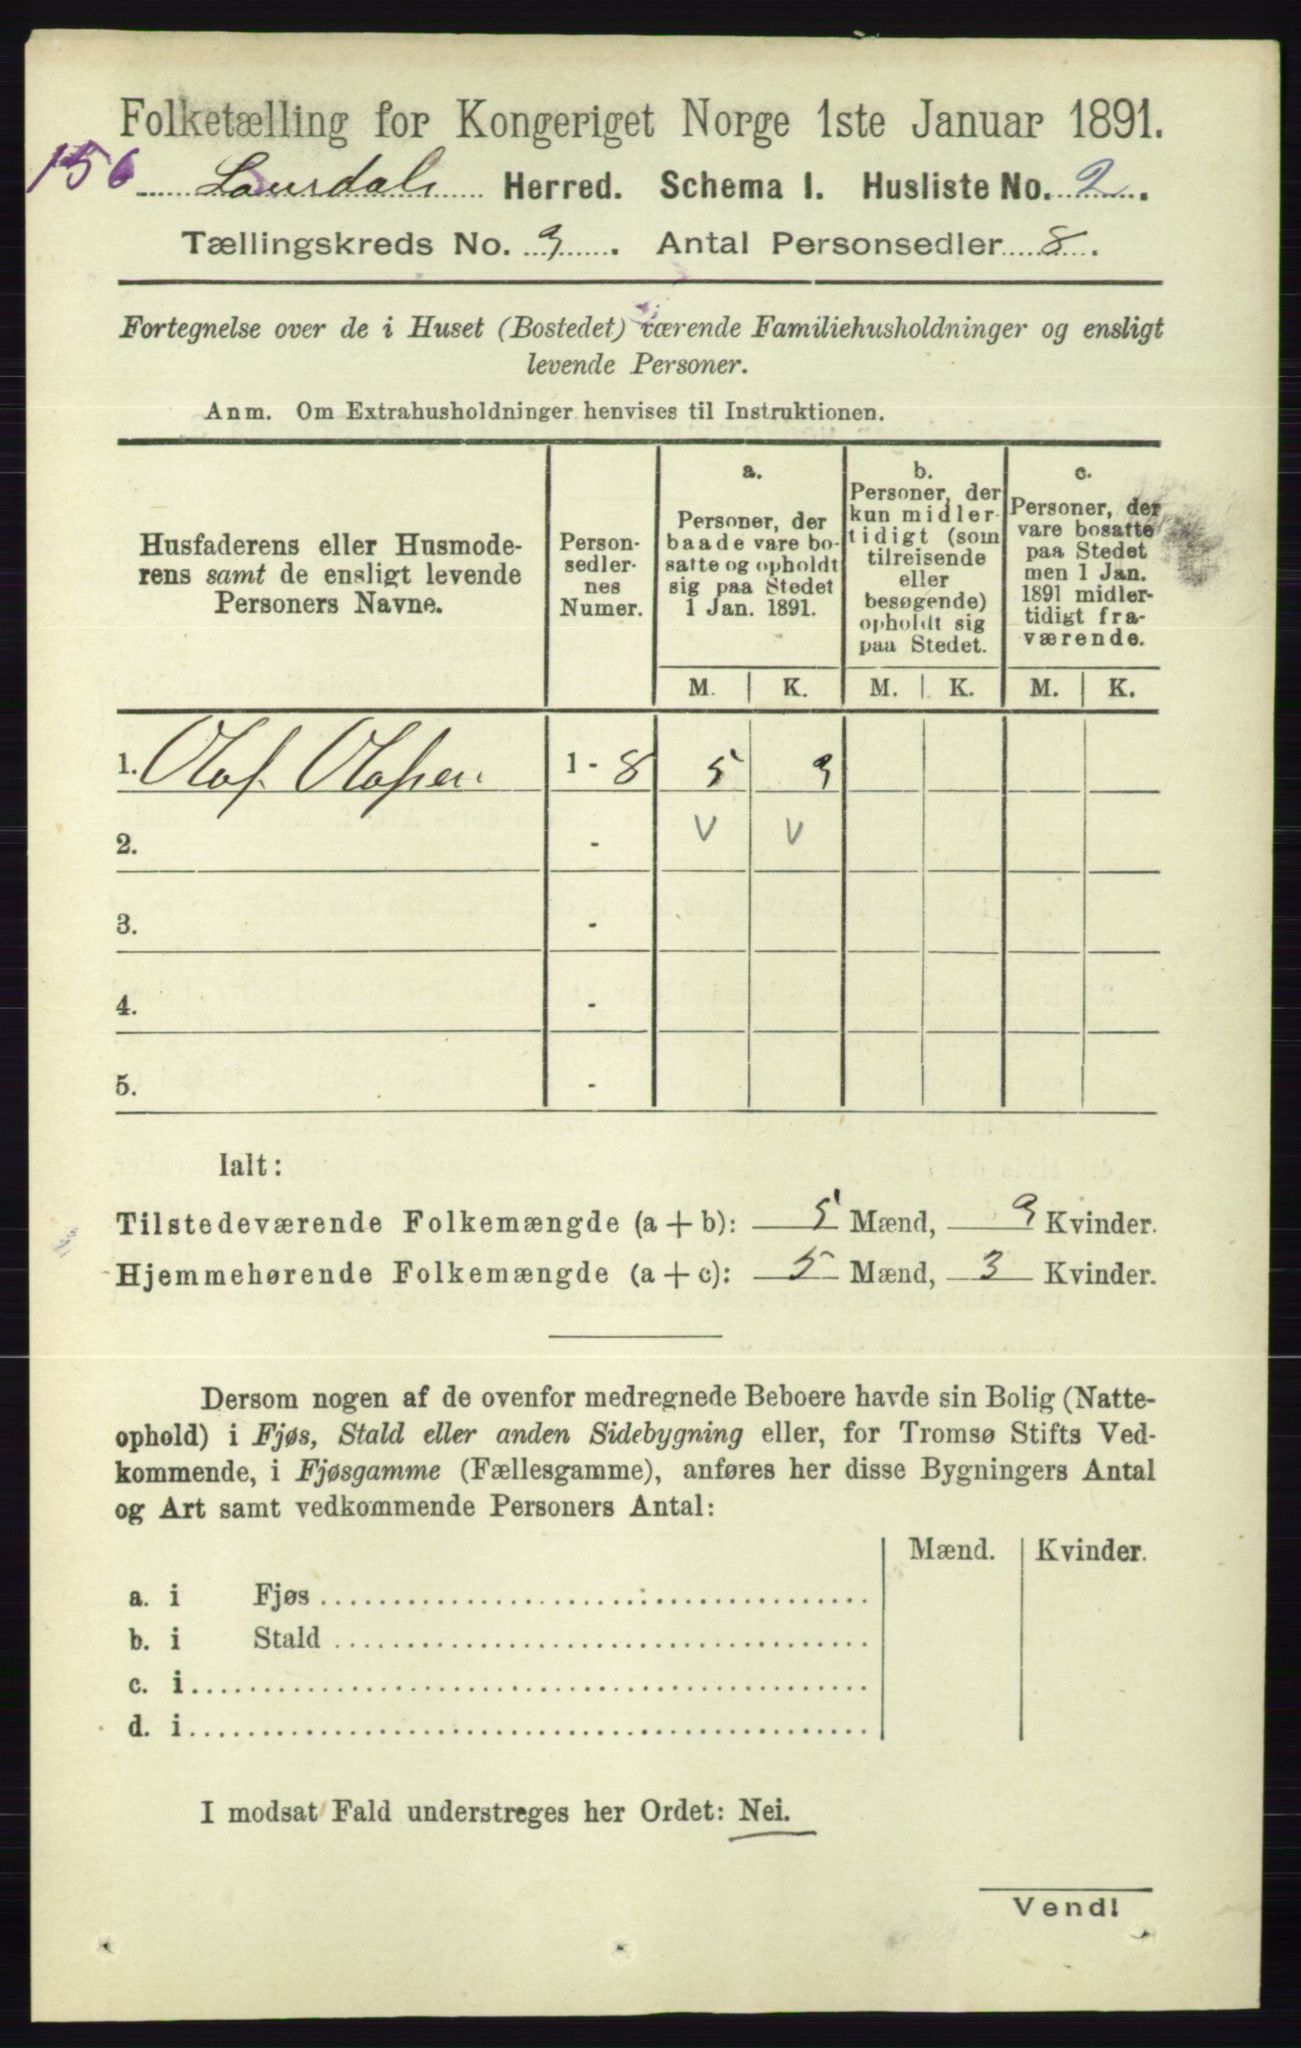 Folketælling for Kongeriget Norge 1ste Januar 1891.
156 Laurdals Herred. Schema I. Husliste No. 2.
Tællingskreds No. 3. Antal Personsedler 8.
Fortegnelse over de i Huset (Bostedet) værende Familiehusholdninger og ensligt
levende Personer.
Anm. Om Extrahusholdninger henvises til Instruktionen.
Husfaderens eller Husmode-
rens samt de ensligt levende
Personers Navne.
Person-
sedler-
nes
Numer.
a.
Personer, der
baade vare bo-
satte og opholdt
sig paa Stedet
1 Jan. 1891.
b.
Personer, der
kun midler-
tidigt (som
tilreisende
eller
besøgende)
opholdt sig
paa Stedet.
c.
Personer, der
vare bosatte
paa Stedet
men 1 Jan.
1891 midler-
tidigt fra-
værende.
M. K. M. K. M. K.
1. Olaf Olafsen. 1 - 8 5 3
2. - V V
3. -
4. -
5. -
Ialt:
Tilstedeværende Folkemængde (a + b): 5 Mænd, 3 Kvinder.
Hjemmehørende Folkemængde (a + c): 5 Mænd, 3 Kvinder.
Dersom nogen af de ovenfor medregnede Beboere havde sin Bolig (Natte-
ophold) i Fjøs, Stald eller anden Sidebygning eller, for Tromsø Stifts Ved-
kommende, i Fjøsgamme (Fællesgamme), anføres her disse Bygningers Antal
og Art samt vedkommende Personers Antal:
Mænd. Kvinder.
a. i Fjøs
b. i Stald
c. i
d. i
I modsat Fald understreges her Ordet: Nei.
Vend!